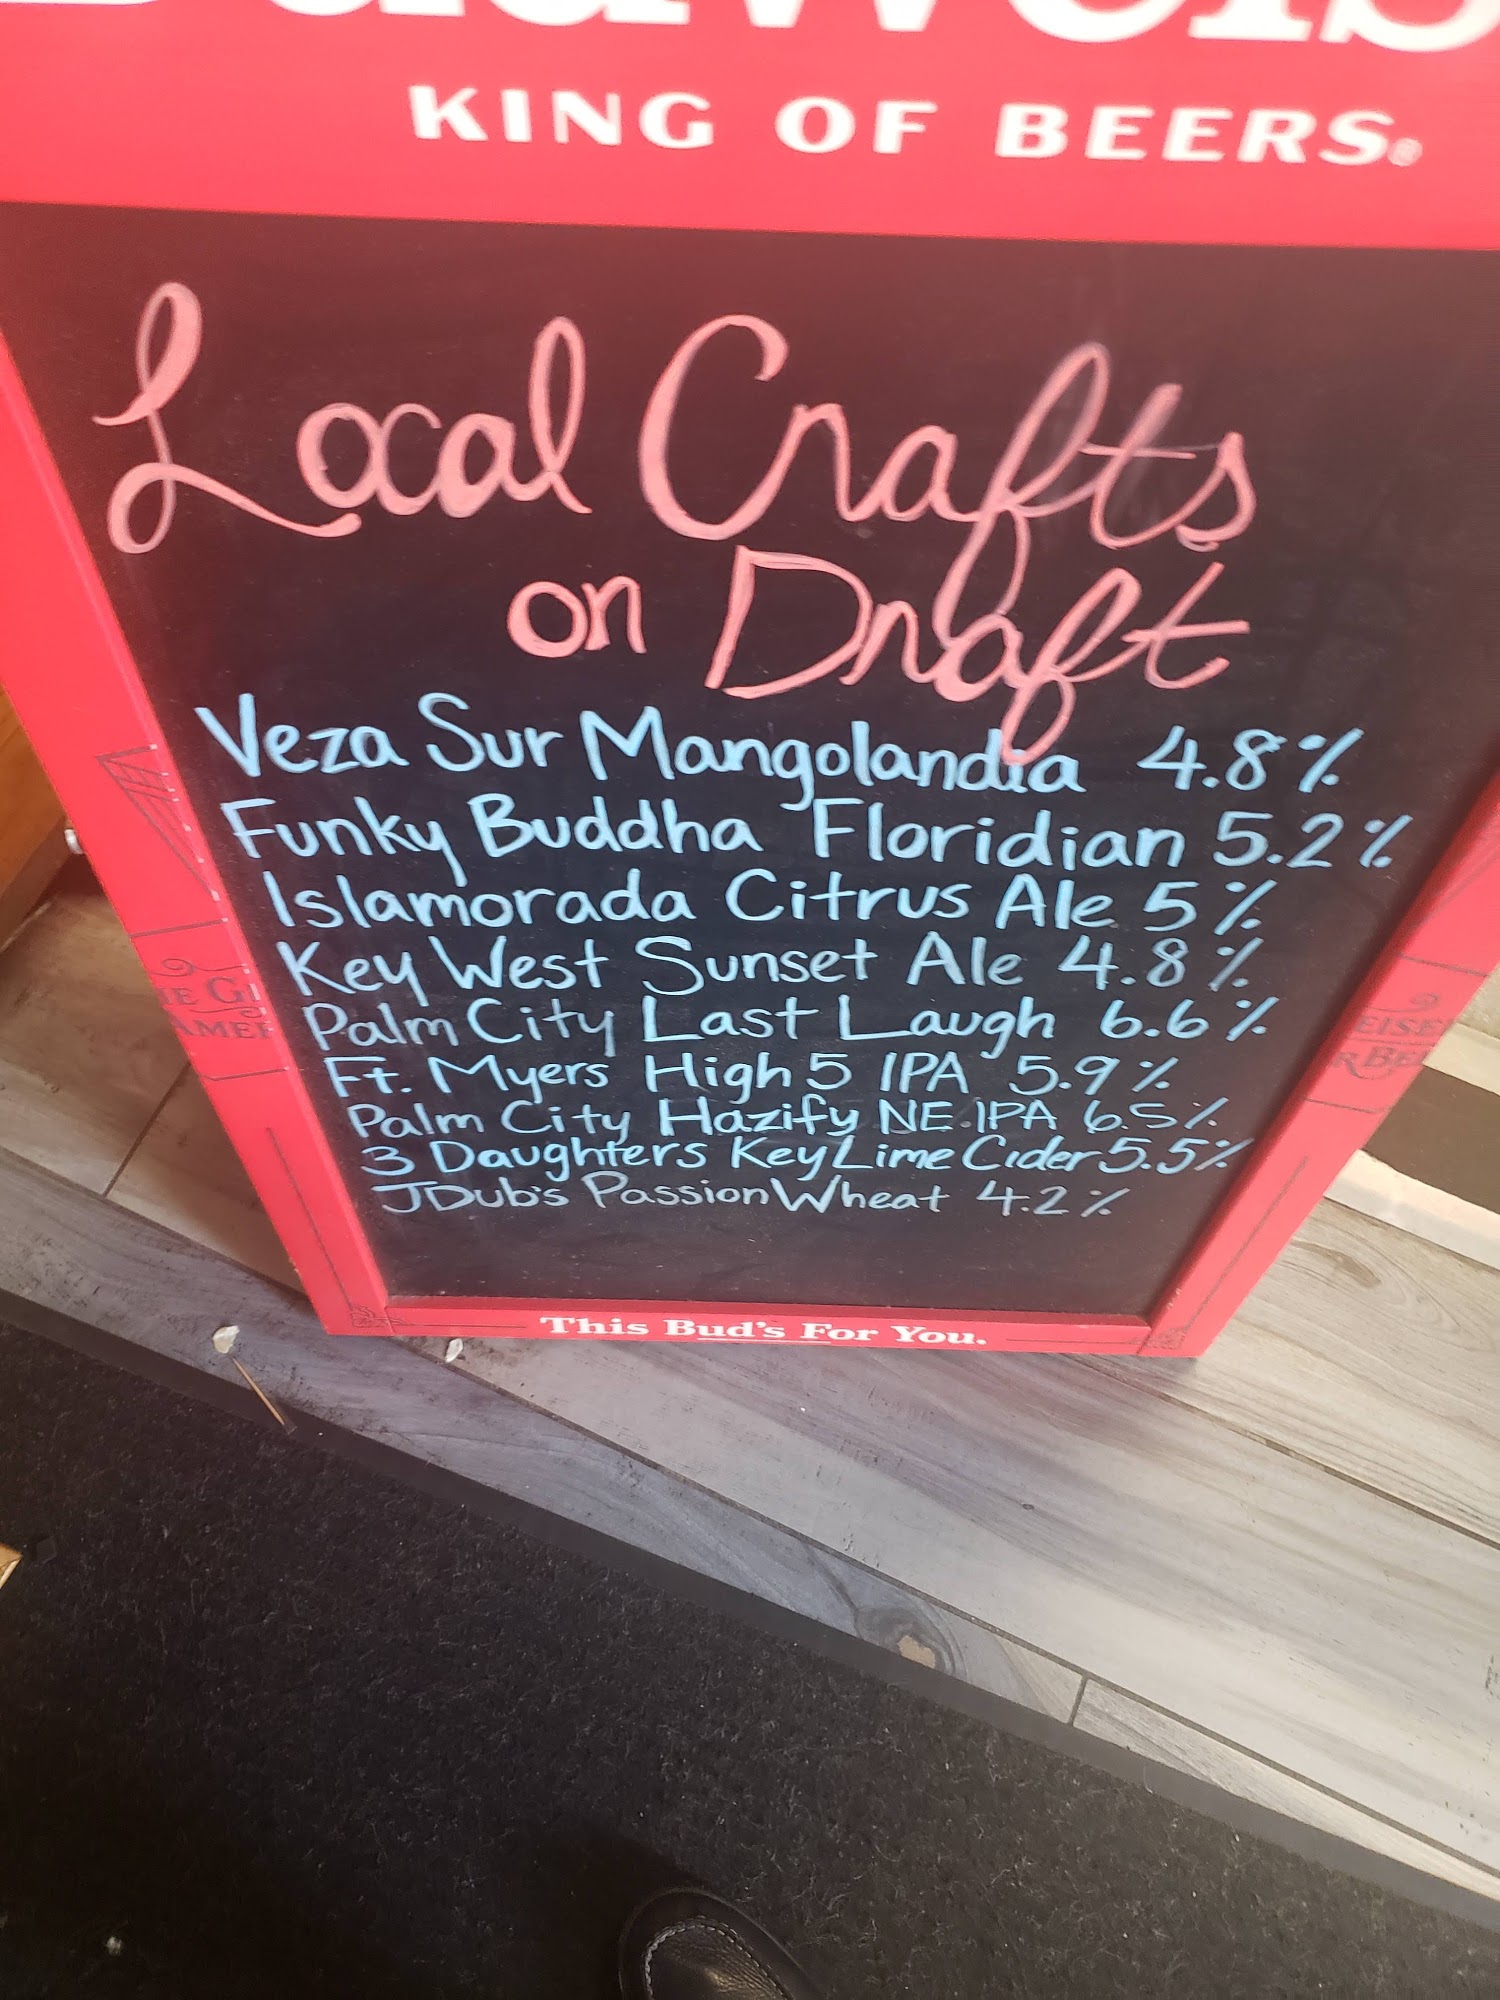 KING OF BEERS®
Local Crafts
on Draft
Veza Sur Mangolandia 4.8%
Funky Buddha Floridian 5.2%
Islamorada Citrus Ale 5%
Key West Sunset Ale 4.8%
Palm City Last Laugh 6.6%
Ft. Myers High 5 IPA 5.9%
Palm City Hazify NE IPA 6.5%
3 Daughters Key Lime Cider 5.5%
JDub's Passion Wheat 4.2%
This Bud's For You.